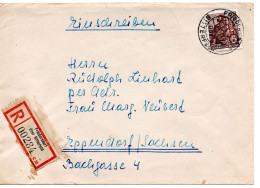 Einschreiben
Herrn
Rudolph Linhart
per Adr.
Frau Marg. Neubert
Eppendorf/Sachsen
Bachgasse 4
R
00284